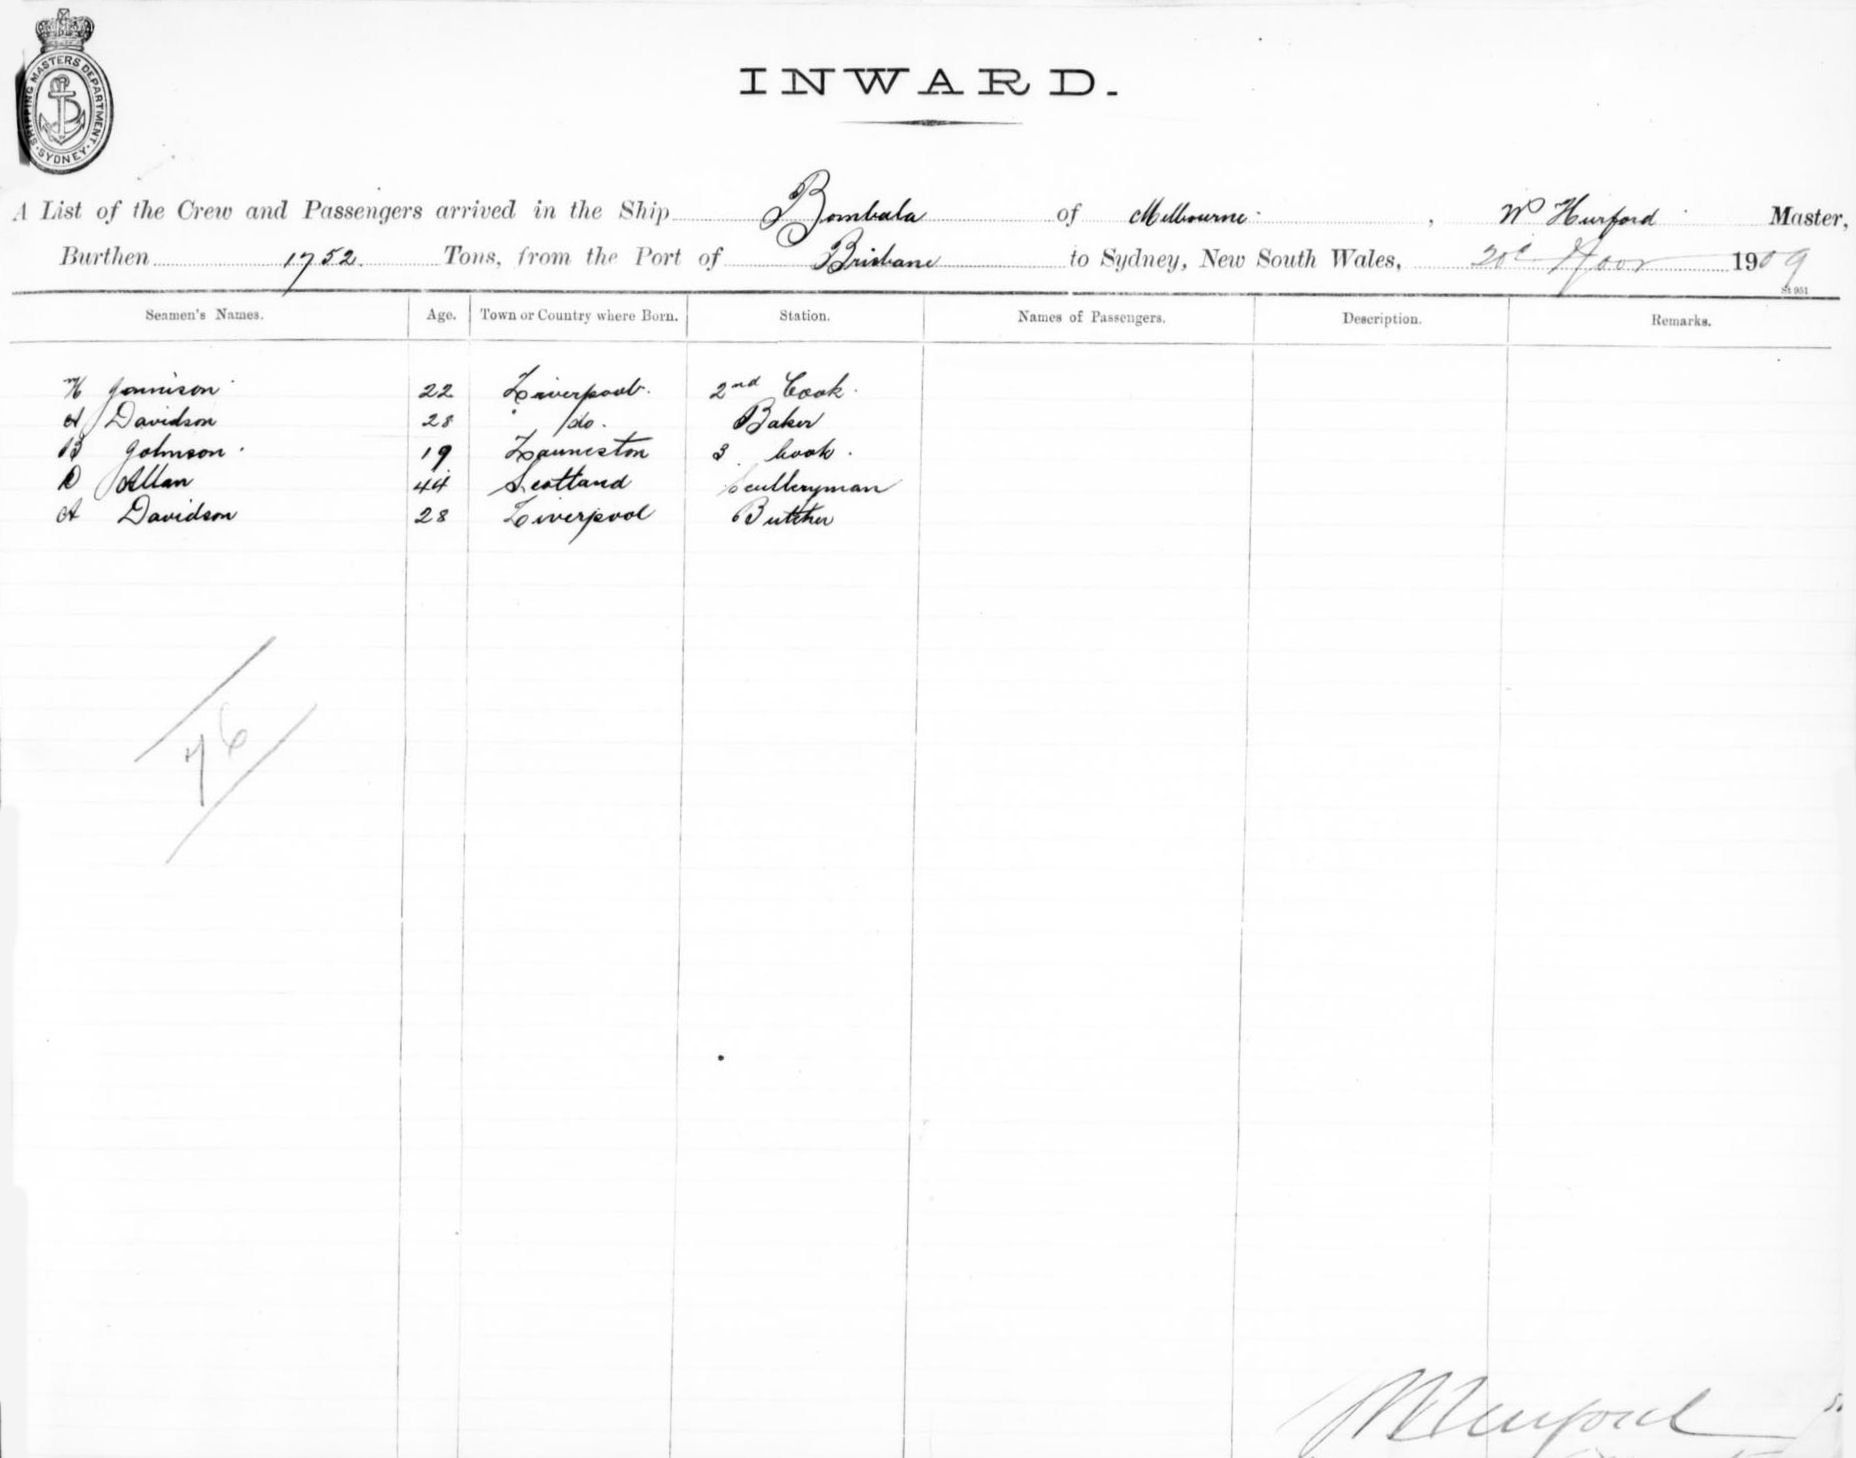 SHIPPING MASTERS DEPARTMENT
SYDNEY
INWARD.
A List of the Crew and Passengers arrived in the Ship Bombala of Melbourne, W Hurford Master,
Burthen 1752 Tons, from the Port of Brisbane to Sydney, New South Wales, 1909
St 951
Seamen's Names. Age. Town or Country where Born. Station. Names of Passengers. Description. Remarks.
22 Liverpool. 2nd Cook.
A Davidson 28 do. Baker
B Johnson. 19 Launceston 3 Cook.
D Allan 44 Scotland Sculleryman
A Davidson 28 Liverpool Butcher
76
Hurford